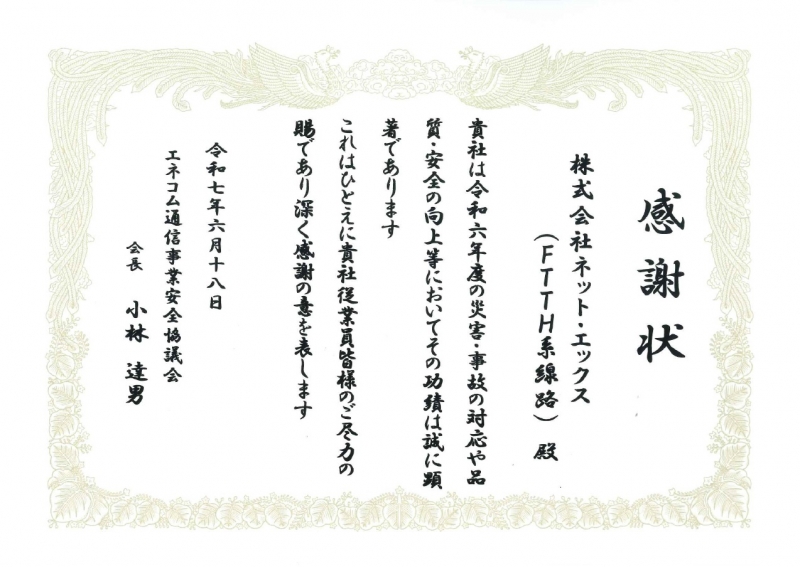 感謝状
株式会社ネット・エックス
（FTTH系線路）殿
貴社は令和六年度の災害・事故の対応や品
質・安全の向上等においてその功績は誠に顕
著であります
これはひとえに貴社従業員皆様のご尽力の
賜であり深く感謝の意を表します
令和七年六月十八日
エネコム通信事業安全協議会
会長 小林達男